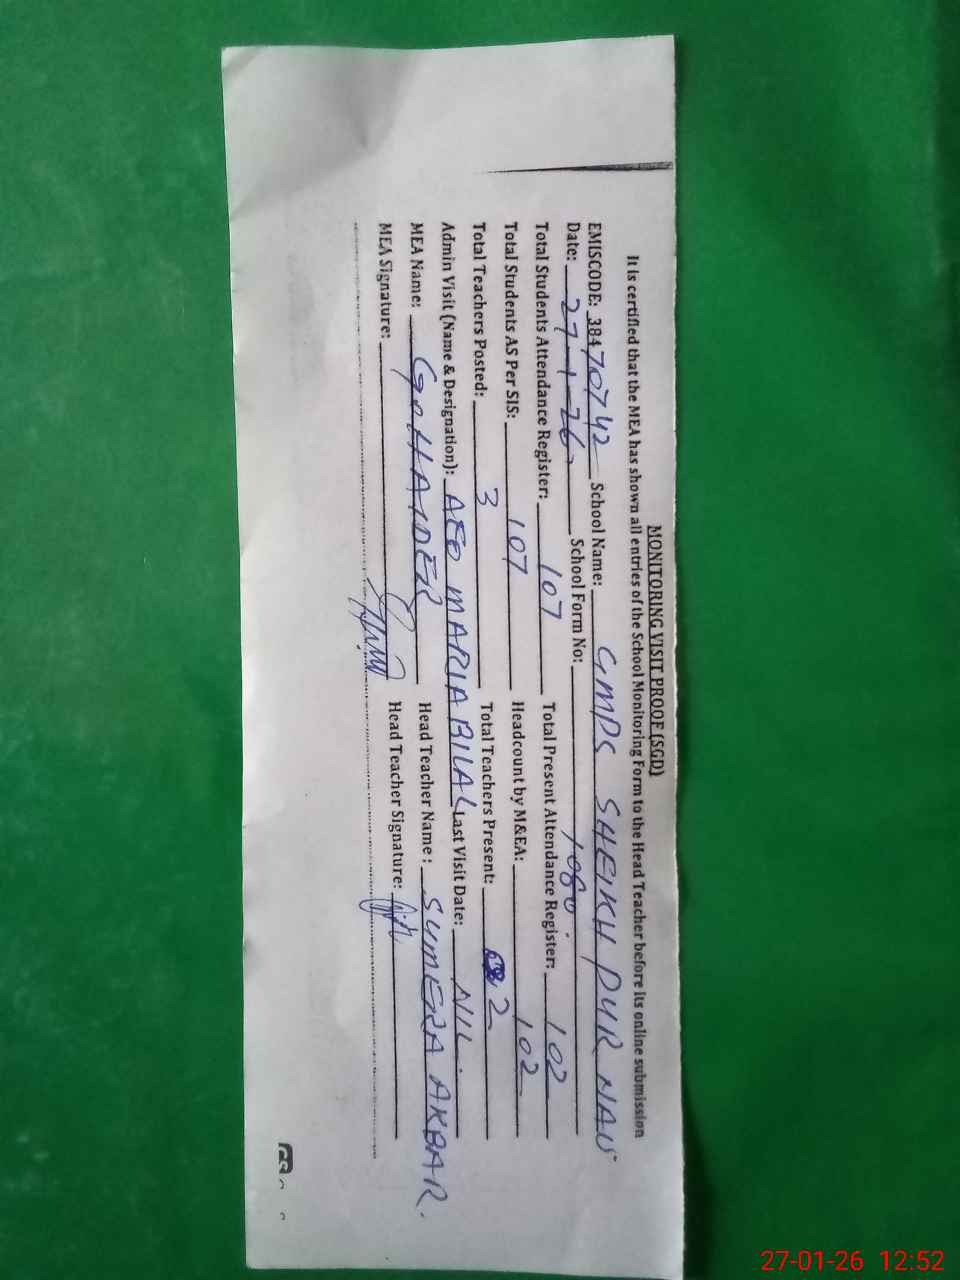 MONITORING VISIT PROOF (SGD)
It is certified that the MEA has shown all entries of the School Monitoring Form to the Head Teacher before its online submission
EMISCODE: 38470742 School Name: GMPS SHEIKH PUR NAU
Date: 27-1-26 School Form No: 1080
Total Students Attendance Register: 107 Total Present Attendance Register: 102
Total Students AS Per SIS: 107 Headcount by M&EA: 102
Total Teachers Posted: 3 Total Teachers Present: 2
Admin Visit (Name & Designation): AEO MARIA BILAL Last Visit Date: NIL.
MEA Name: G. HAIDER Head Teacher Name : SUMERA AKBAR.
MEA Signature: Head Teacher Signature:
CS
27-01-26 12:52